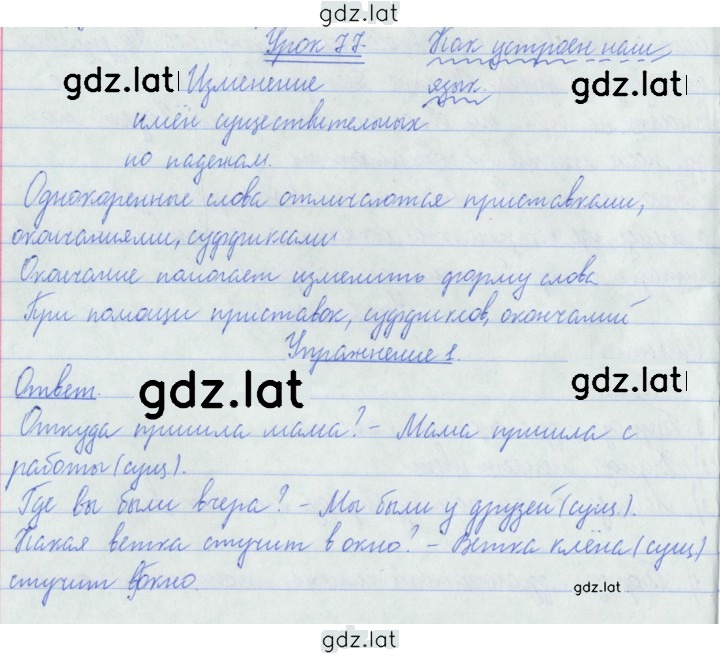 gdz.lat
Урок 77. Как устроен наш
gdz.lat Изменение язык. gdz.lat
имён существительных
по падежам.
Однокоренные слова отличаются приставками,
окончаниями, суффиксами
Окончание помогает изменить форму слова
При помощи приставок, суффиксов, окончаний
Упражнение 1.
Ответ. gdz.lat gdz.lat
Откуда пришла мама? - Мама пришла с
работы (сущ.).
Где вы были вчера? - Мы были у друзей (сущ.).
Какая ветка стучит в окно? - Ветка клёна (сущ)
стучит в окно. gdz.lat
gdz.lat